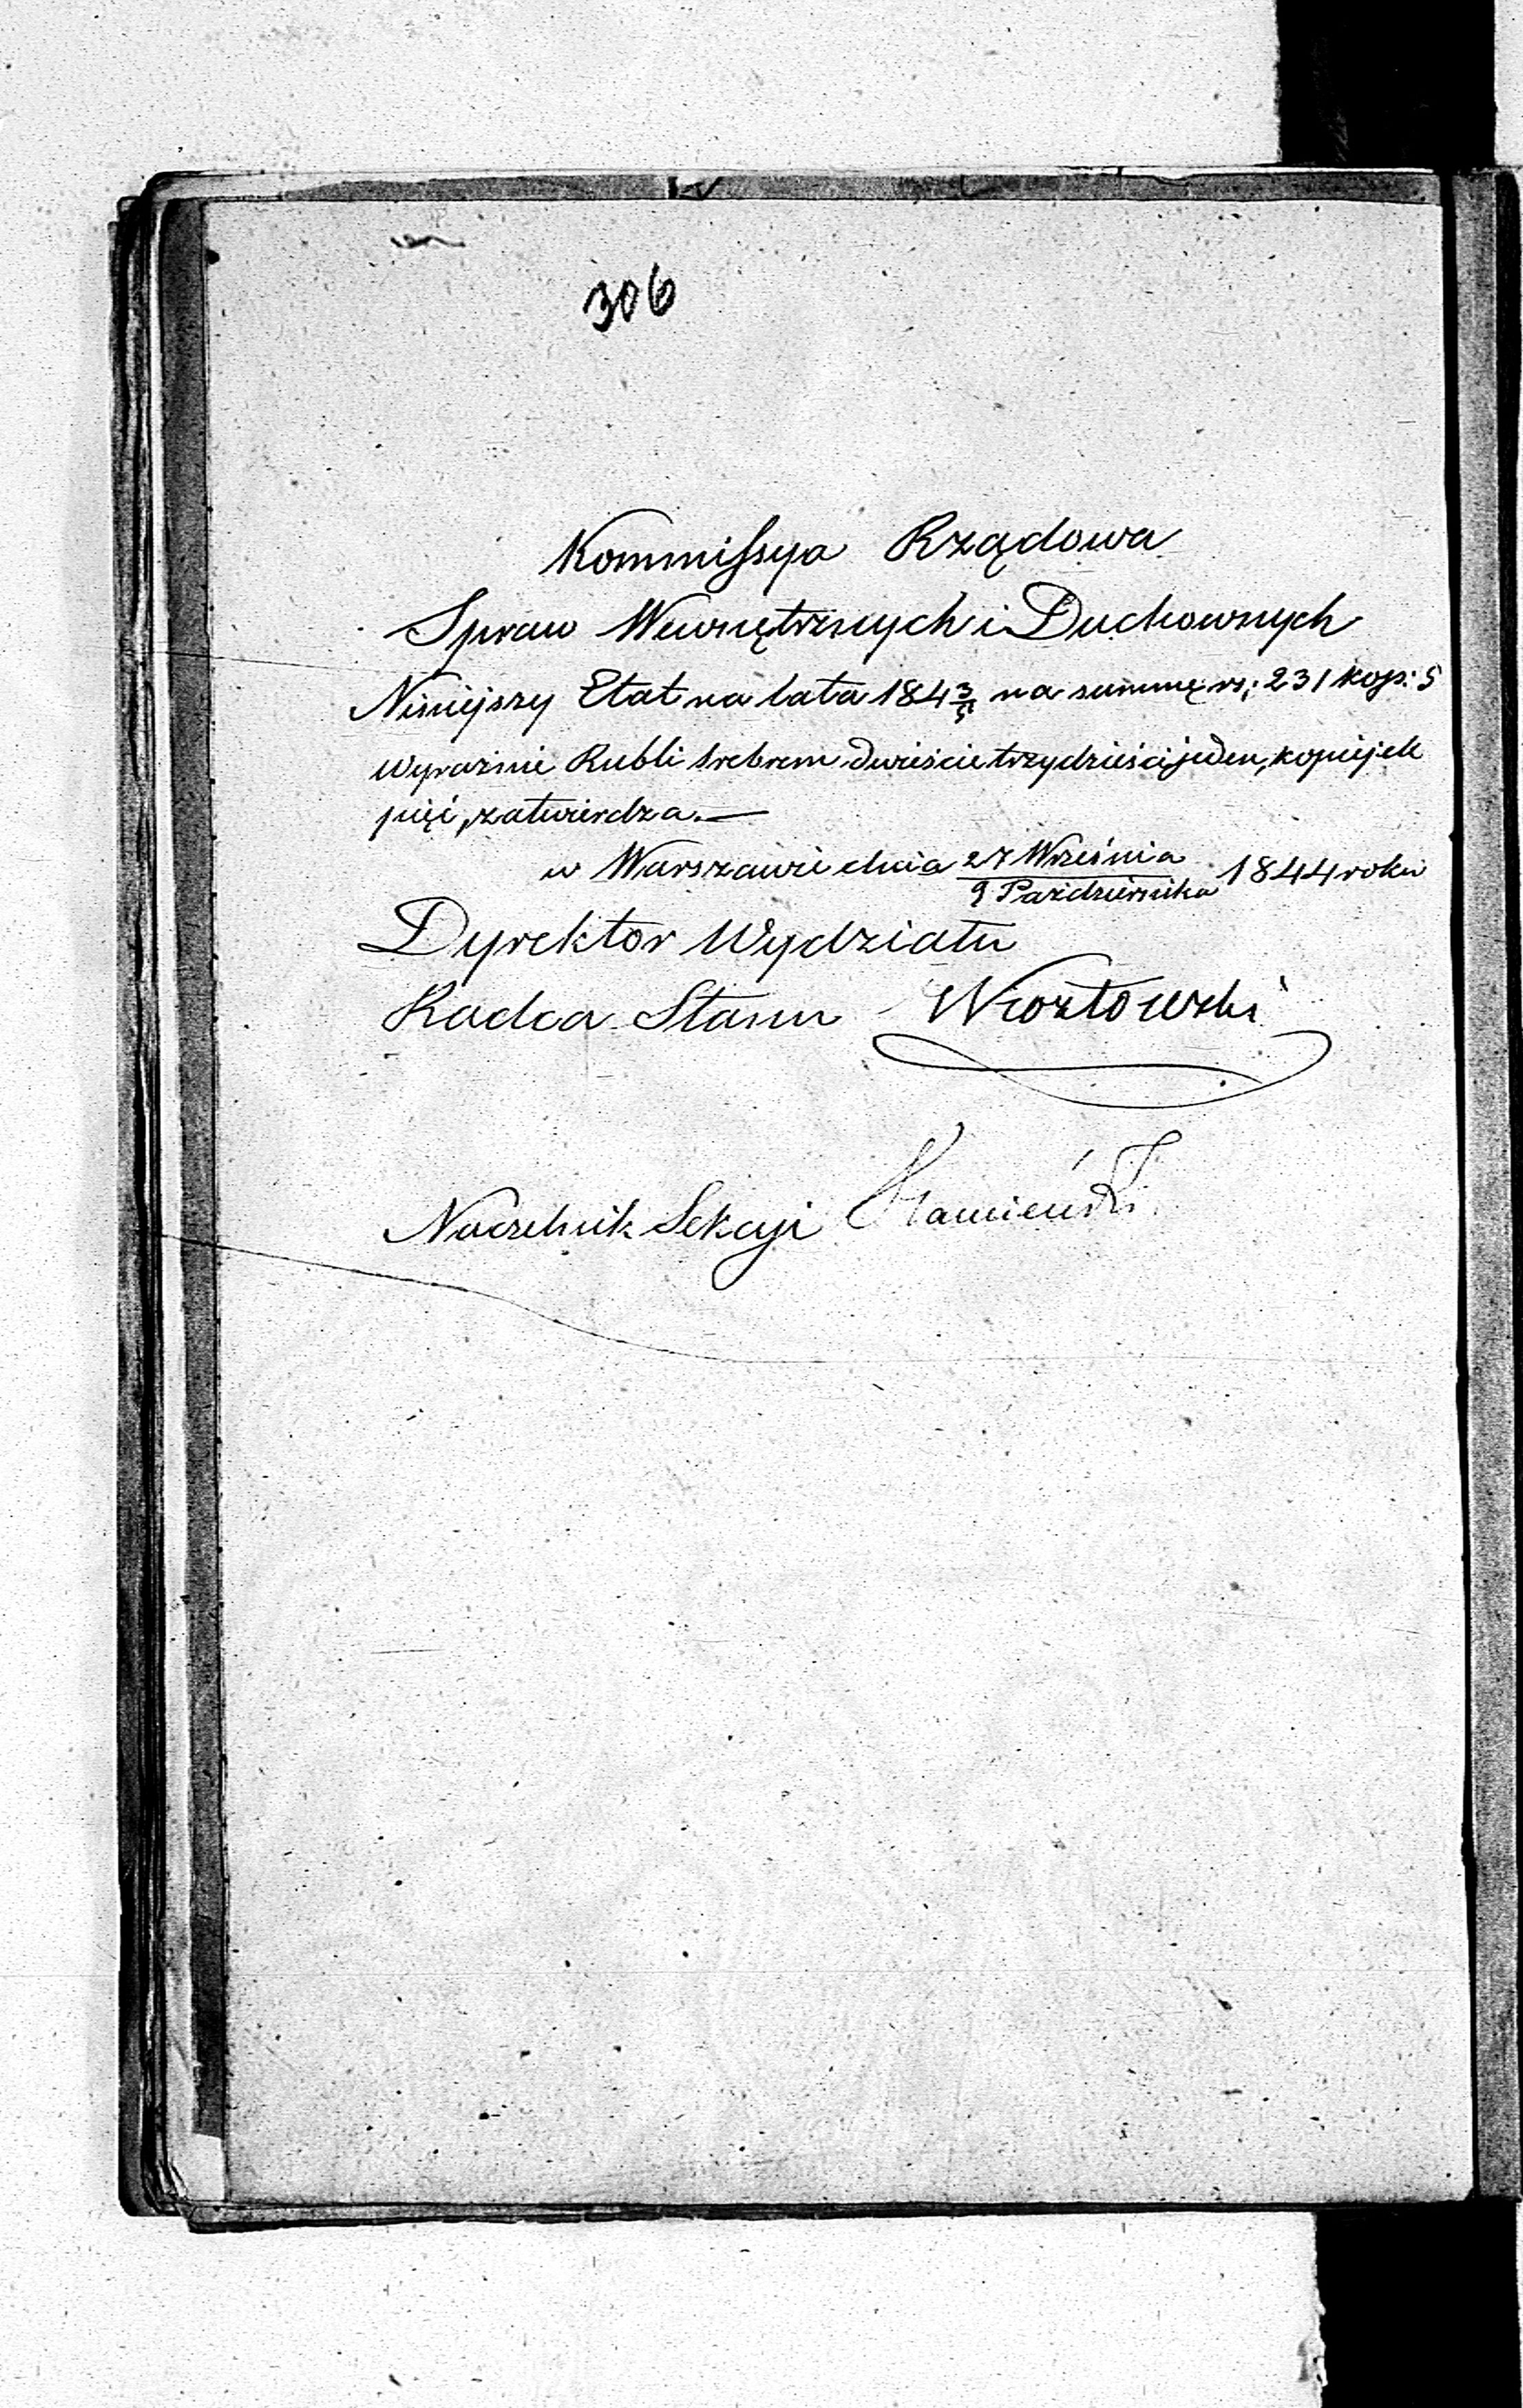 306
Kommissya Rządowa
Spraw Wewnętrznych i Duchownych
Niniejszy Etat na lata 184 3/5 na summę rs: 231 kop: 5
wyraźnie Rubli srebrem dwieście trzydzieści jeden, kopiejek
pięć, zatwierdza.—
w Warszawie dnia 27 Września / 9 Października 1844 roku
Dyrektor Wydziału
Radca Stanu
Naczelnik Sekcyi Kamieński